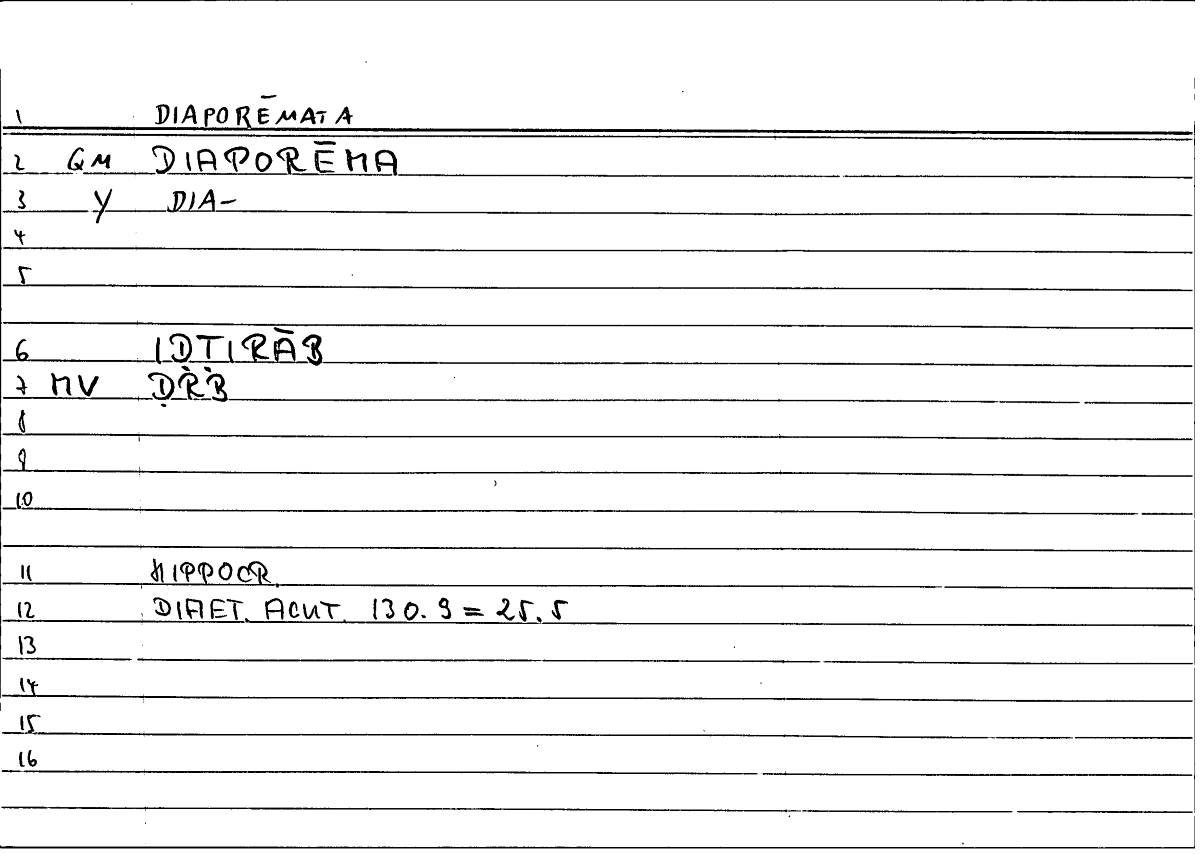 1 DIAPORĒMATA
2 GM DIAPORĒMA
3 Y DIA-
4
5
6 IDTIRĀB
7 MV ḌRB
8
9
10
11 HIPPOCR.
12 DIAET. ACUT. 130.9 = 25.5
13
14
15
16